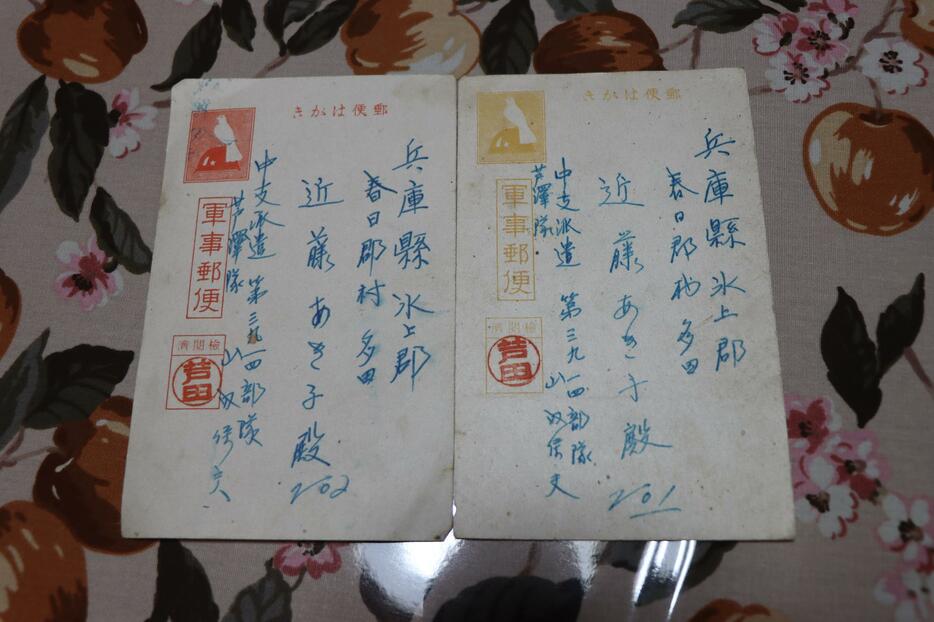 郵便はがき
兵庫縣 氷上郡
春日部村 多田
近藤あき子殿
201
中支派遣 第三九一四部隊
芦澤隊
軍事郵便
檢閲濟
芦田
郵便はがき
兵庫縣 氷上郡
春日部村 多田
近藤あき子殿
202
中支派遣 第三九一四部隊
芦澤隊
軍事郵便
檢閲濟
芦田